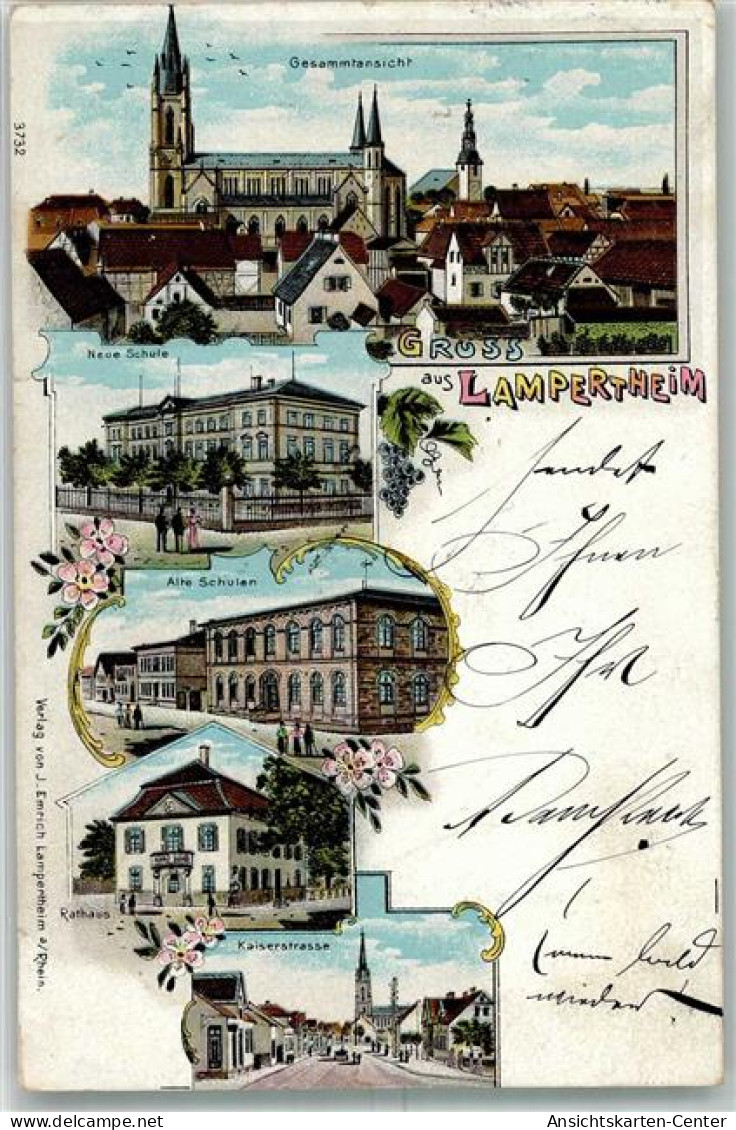 3732
Gesammtansicht
GRUSS
aus LAMPERTHEIM
Neue Schule
Alte Schulen
Rathaus
Kaiserstrasse
Verlag von J. Emrich Lampertheim a/Rhein.
sendet
Ihnen
Ihr
(komm bald
wieder!
Ansichtskarten-Center